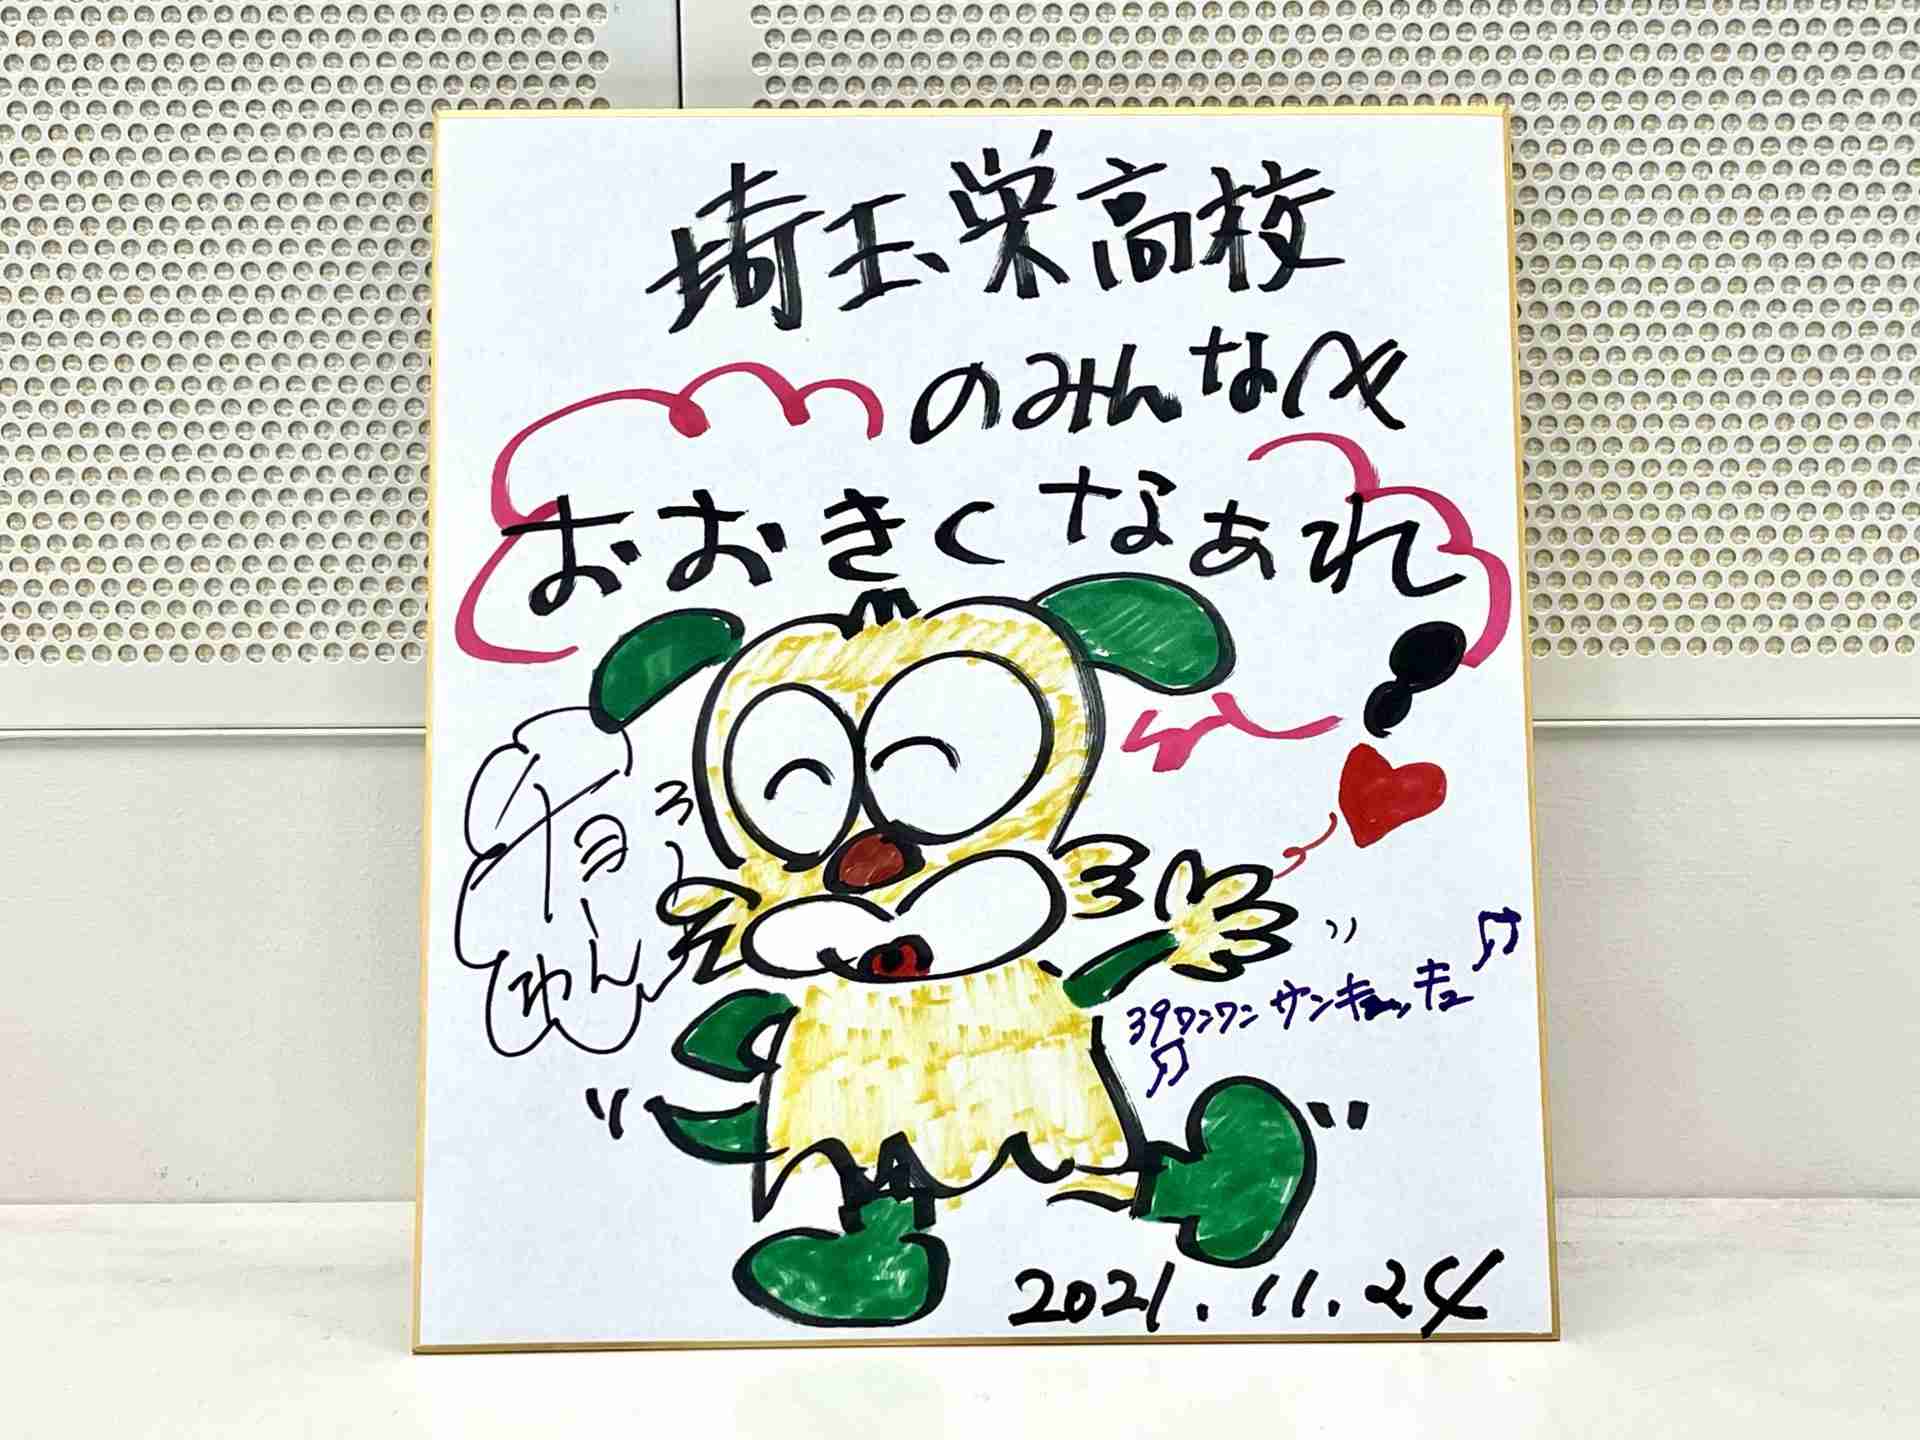 埼玉栄高校
のみんなへ
おおきくなあれ!
チョー
わん
39ワンワン サンキューッキュ
2021.11.24